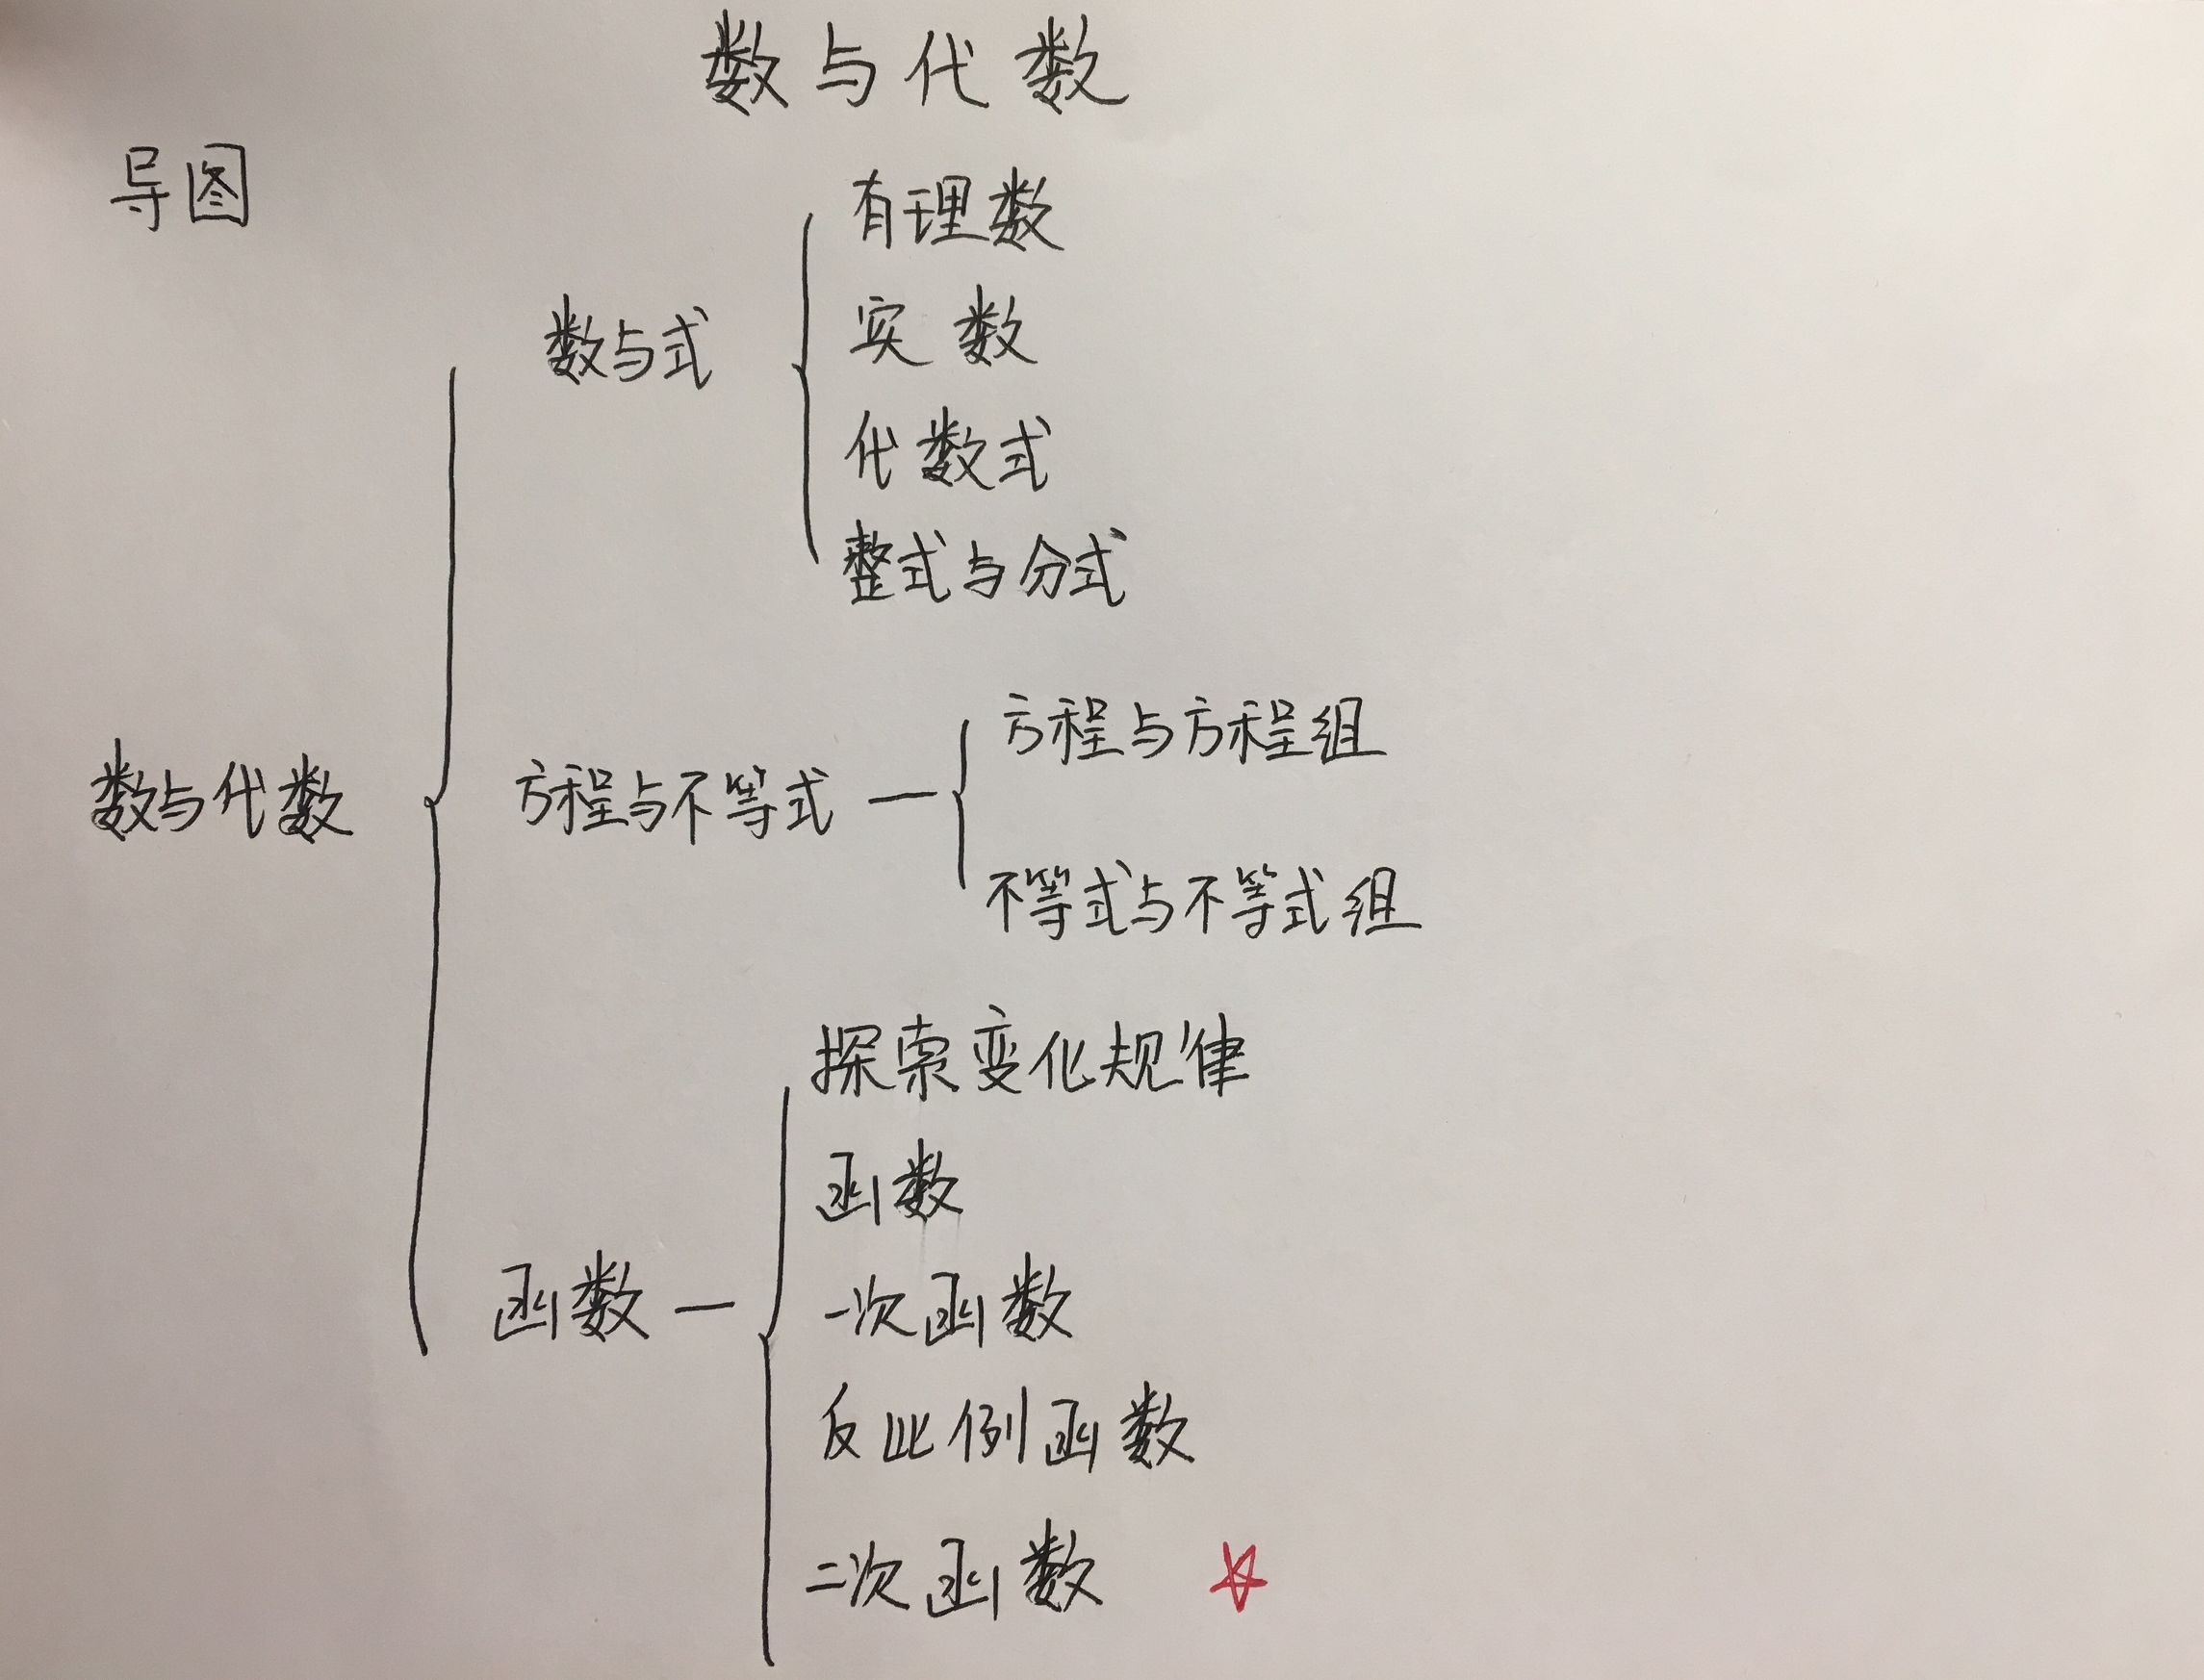 数与代数
导图
有理数
数与式
实数
代数式
整式与分式
方程与方程组
数与代数
方程与不等式
不等式与不等式组
探索变化规律
函数
函数
一次函数
反比例函数
二次函数